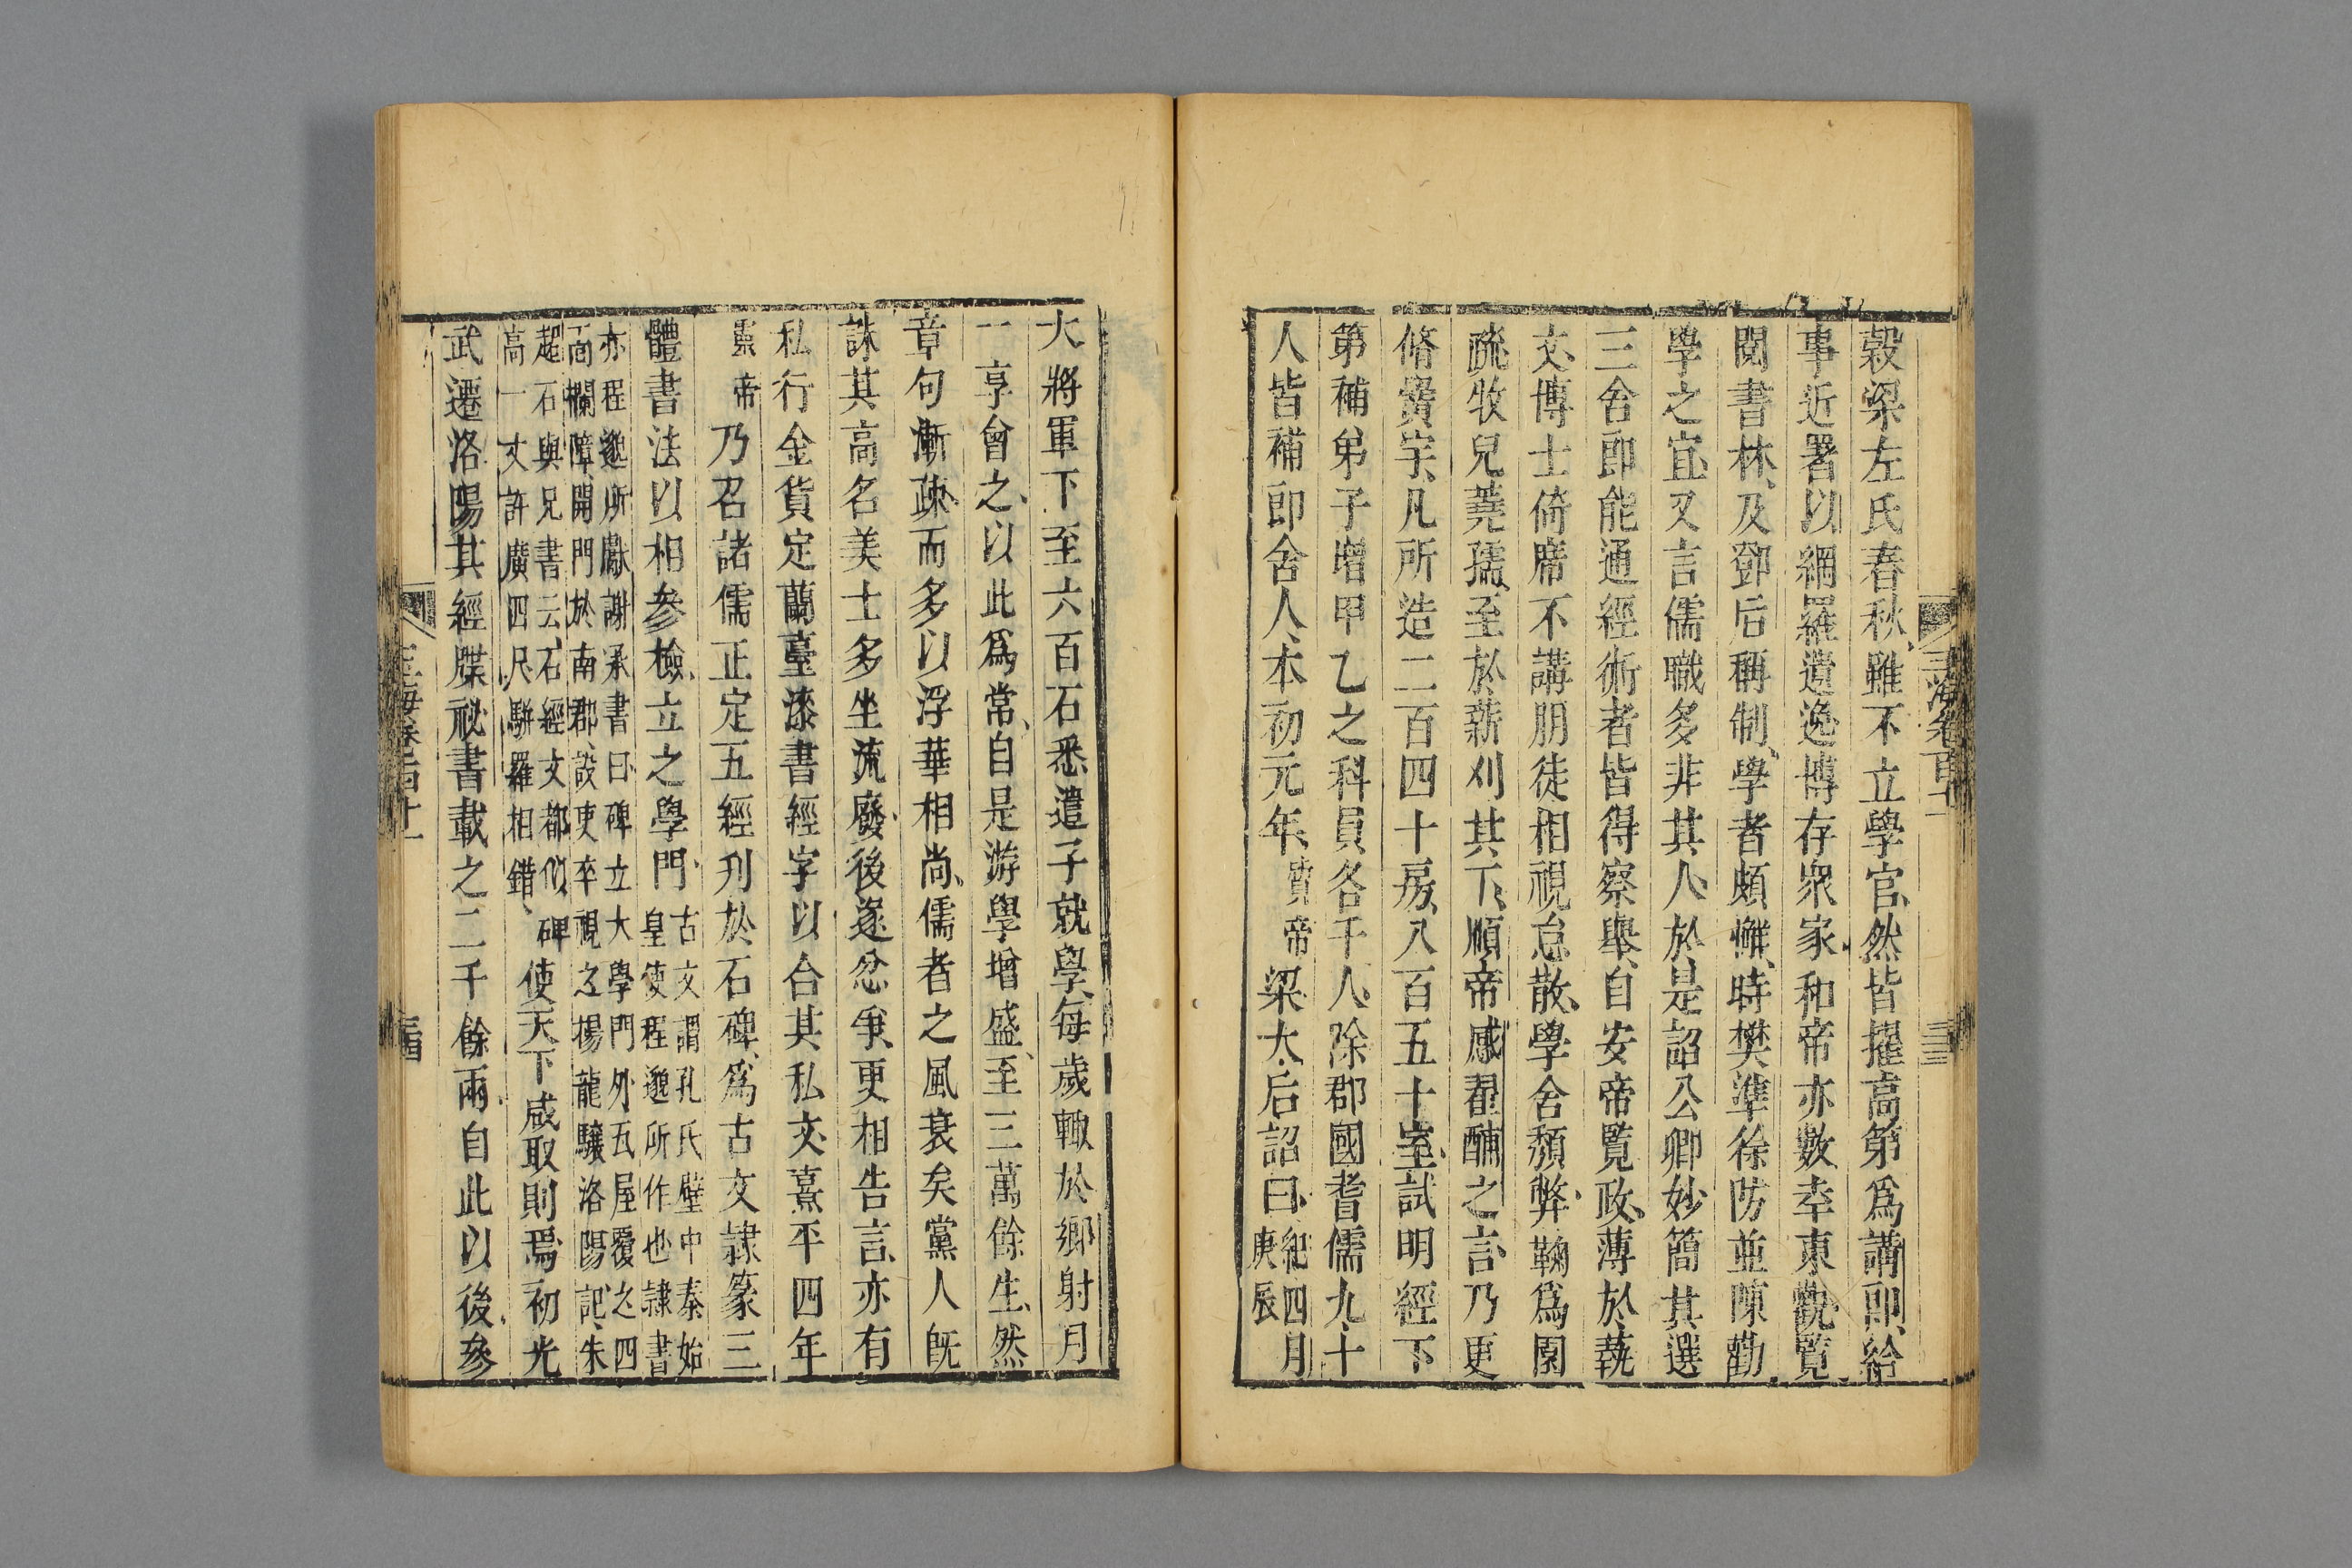 穀梁左氏春秋、雖不立學官、然皆擢高第爲講郎、給
事近署以網羅遺逸博存衆家、和帝亦數幸東觀覧
閱書林、及鄧后稱制、學者頗懈、時樊準徐防並陳勸
學之宜、又言儒職多非其人、於是詔公卿妙簡其選
三舍郎能通經術者皆得察舉、自安帝覧政、薄於蓺
文、博士倚席不講朋徒相視怠散、學舍頹弊、鞠爲園
疏、牧兒蕘孺、至於薪刈其下、順帝感翟酺之言、乃更
脩黌宇、凡所造二百四十房、八百五十室、試明經下
第補弟子增甲乙之科員各千人、除郡國耆儒九十
人皆補郎舍人、本初元年、質帝梁太后詔曰、紀四月
庚辰
大將軍下至六百石悉遣子就學、每歲輙於鄉射月
一享會之、以此爲常、自是游學增盛、至三萬餘生、然
章句漸疎、而多以浮華相尚、儒者之風衰矣黨人旣
誅其高名美士多坐流廢、後遂忿爭、更相告言、亦有
私行金貨定蘭臺漆書經字以合其私文、熹平四年
靈帝乃召諸儒正定五經刋於石碑、爲古文隸篆三
體書法以相參檢、立之學門、古文謂孔氏壁中秦始
皇使程邈所作也隷書
亦程邈所獻謝承書曰碑立太學門外瓦屋覆之四
面欄障、開門於南郡、設吏卒視之、楊龍驤洛陽記、朱
超石與兄書云、石經文都似碑
高一丈許廣四尺、騈羅相錯、使天下咸取則焉、初光
武遷洛陽其經牒祕書載之二千餘兩、自此以後、參